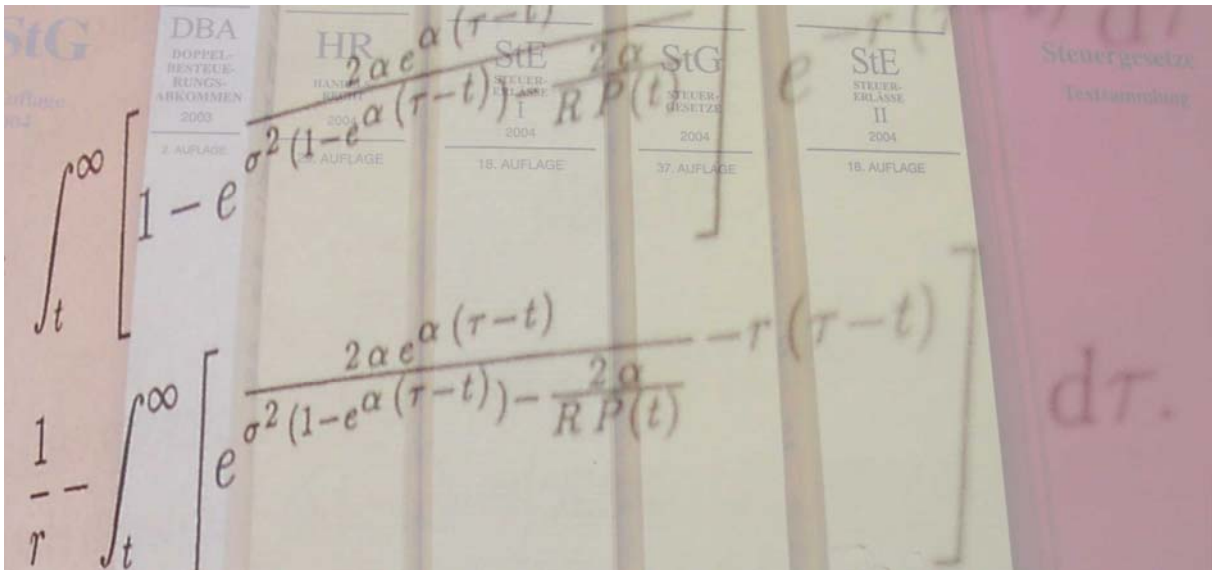 StG
DBA
DOPPEL-
BESTEUE-
RUNGS-
ABKOMMEN
2003
2. AUFLAGE
HR
HANDELS-
RECHT
2004
AUFLAGE
StE
STEUER-
ERLÄSSE
I
2004
18. AUFLAGE
StG
STEUER-
GESETZE
2004
37. AUFLAGE
StE
STEUER-
ERLÄSSE
II
2004
18. AUFLAGE
Steuergesetze
Textsammlung
∫_t^∞ [1 − e^{\frac{2αe^{α(τ−t)}}{σ²(1−e^{α(τ−t)})−\frac{2α}{R P(t)}}}] e^{−r(τ−t)} dτ
\frac{1}{r} − ∫_t^∞ [e^{\frac{2αe^{α(τ−t)}}{σ²(1−e^{α(τ−t)})−\frac{2α}{R P(t)}} − r(τ−t)}] dτ.